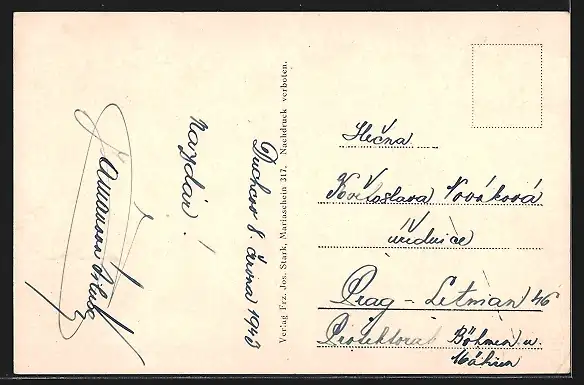 Duchcov 8. června 1943
Nazdar!
Verlag Frz. Jos. Stark, Mariaschein 317. Nachdruck verboten.
Slečna
Květoslava Nováková
úřednice
Prag - Letman 46
Protektorat Böhmen u.
Mähren